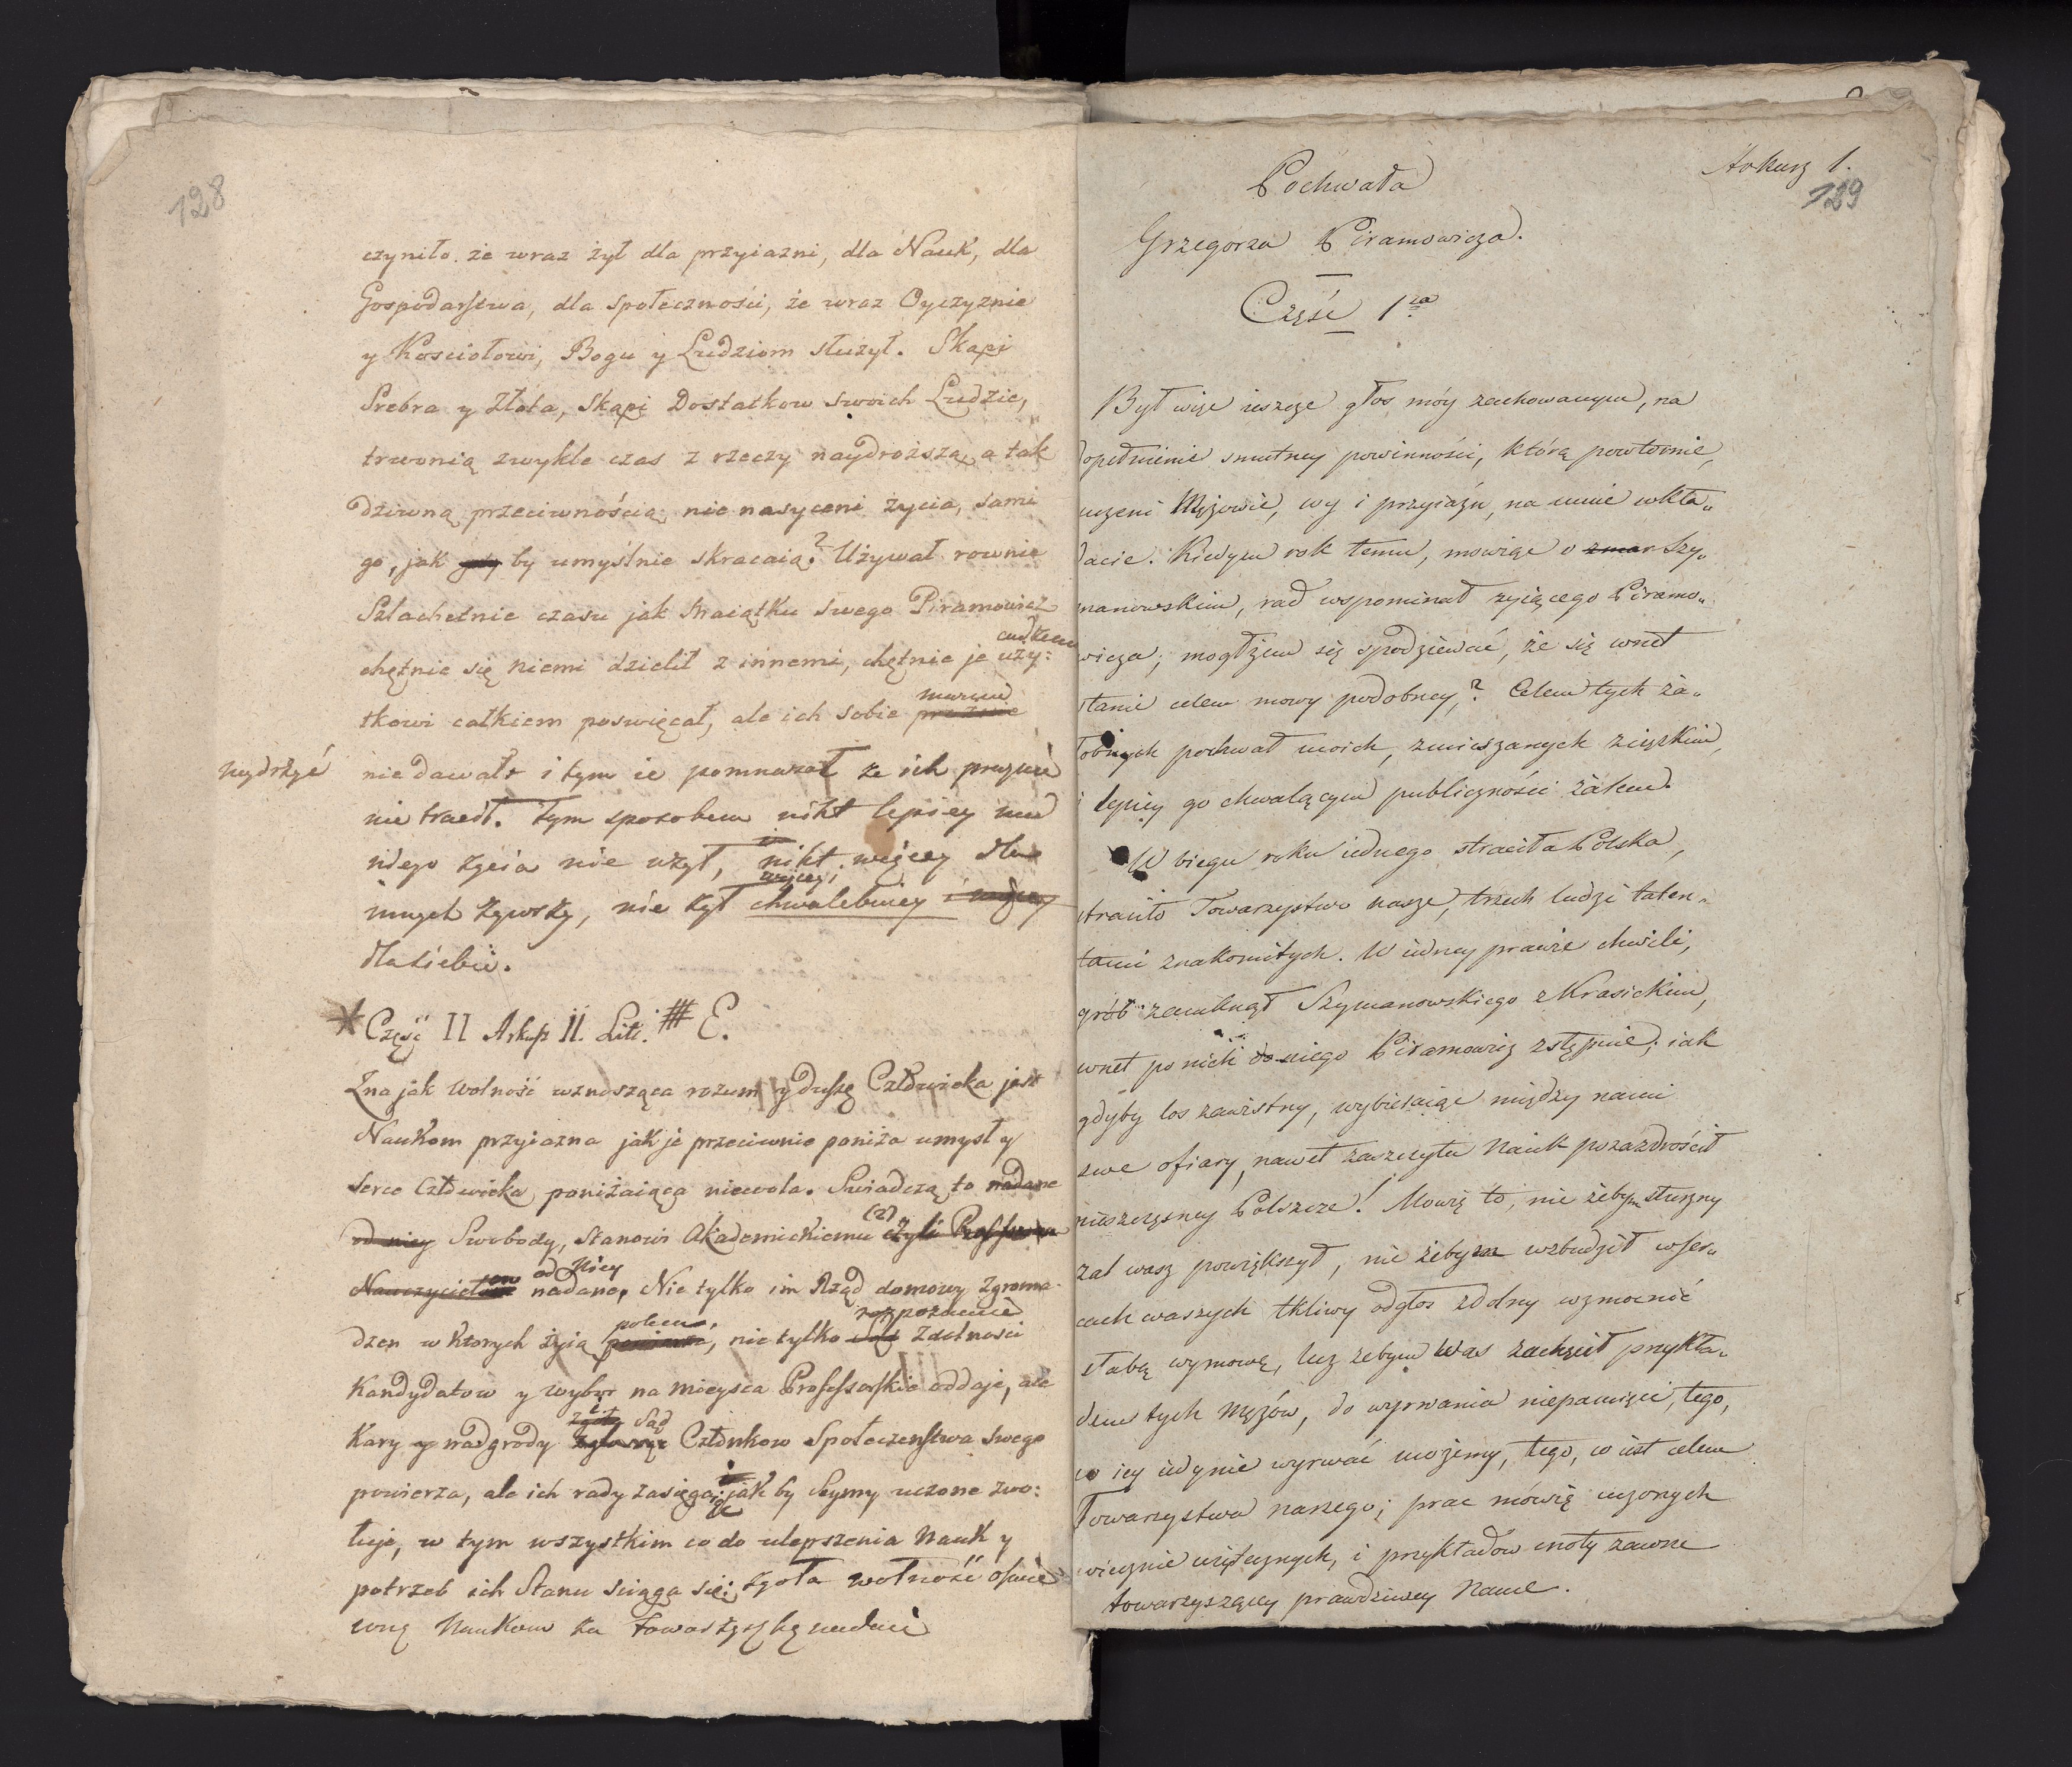 128
czyniło. że wraz żył dla przyiazni, dla Nauk, dla
Gospodarstwa, dla społeczności, że wraz Oyczyznie
y Kosciołowi, Bogu y Ludziom służył. Skąpi
Srebra y Złota, skąpi Dostatkow swoich Ludzie,
trwonią zwykle czas z rzeczy naydroższą, a tak
dziwną przeciwnością nie nasyceni życia, sami
go, jak gdy by umyślnie skracaią? Używał rownie
Szlachetnie czasu jak Maiątku swego Piramowicz
chętnie się niemi dzielił z innemi, chętnie je uży:
tkowi całkiem poswięcał, ale ich sobie
marnie
wydrżyć nie dawał i tym ie pomnażał że ich prożnie
nie tracił. Tym sposobem nikt lepiey nad
niego życia nie użył, nikt więcey dla
więcey i
innych żywszy, nie żył chwalebniey i więcey
dla siebie.
Część II Arkusz II. Litt. # E.
Zna jak wolność wznosząca rozum y duszę Człowieka jest
Naukom przyiazna jak je przeciwnie poniża umysł y
serce Człowieka poniżaiąca niewola. Swiadczą to nadane
od niey Swobody, Stanowi Akademickiemu (2) czyli
od Niey
nadane, Nie tylko im Rząd domowy Zgroma-
rozpoznanie
dzen w ktorych żyią poleca, nie tylko zdolnosci
Kandydatow y wybor na mieysca Professorskie oddaje, ale
Sąd
Kary y nadgrody Członkow Społeczenstwa swego
powierza, ale ich rady zasięgaiąc jak by Seymy uczone zwo:
łuje, w tym wszystkim co do ulepszenia Nauk y
potrzeb ich Stanu sciąga się; zgoła wolność oswie
coną Naukom za towarzyszkę nadaie
Arkusz 1.
129
Pochwała
Grzegorza Piramowicza.
Część 1sza
Był więc ieszcze głos móy zachowanym, na
dopełnienie smutney powinności, którą powtornie,
uczeni Mężowie, wy i przyiaźń, na mnie wkła„
dacie. Kiedym rok temu, mowiąc o zmar Szy„
manowskim, rad wspominał żyiącego Piramo„
wicza; mogłżem się spodziewać, że się wnet
stanie celem mowy podobney? Celem tych ża„
łobnych pochwał moich, zmieszanych z ciężkim,
i lepiey go chwalącym publiczności żalem.
W biegu roku iednego straciła Polska,
straciło Towarzystwo nasze, trzech ludzi talen„
tami znakomitych. W iedney prawie chwili,
grób zamknął Szymanowskiego z Krasickim,
wnet po nich do niego Piramowicz zstępuie; iak
gdyby los zawistny, wybieraiąc między nami
swe ofiary, nawet zaszczytu Nauk pozazdrościł
nieszczęsney Polszcze! Mowię to, nie żebym słuszny
żal wasz powiększył, nie żebym wzbudził w ser„
cach waszych tkliwy odgłos zdolny wzmocnić
słabą wymowę, lecz żebym Was zachęcił przykła„
dem tych Mężów, do wyrwania niepamięci, tego,
co iey iedynie wyrwać możemy, tego, co iest celem
Towarzystwa naszego; prac mówię uczonych
wiecznie użytecznych, i przykładow cnoty zawsze
towarzyszącey prawdziwey Nauce.